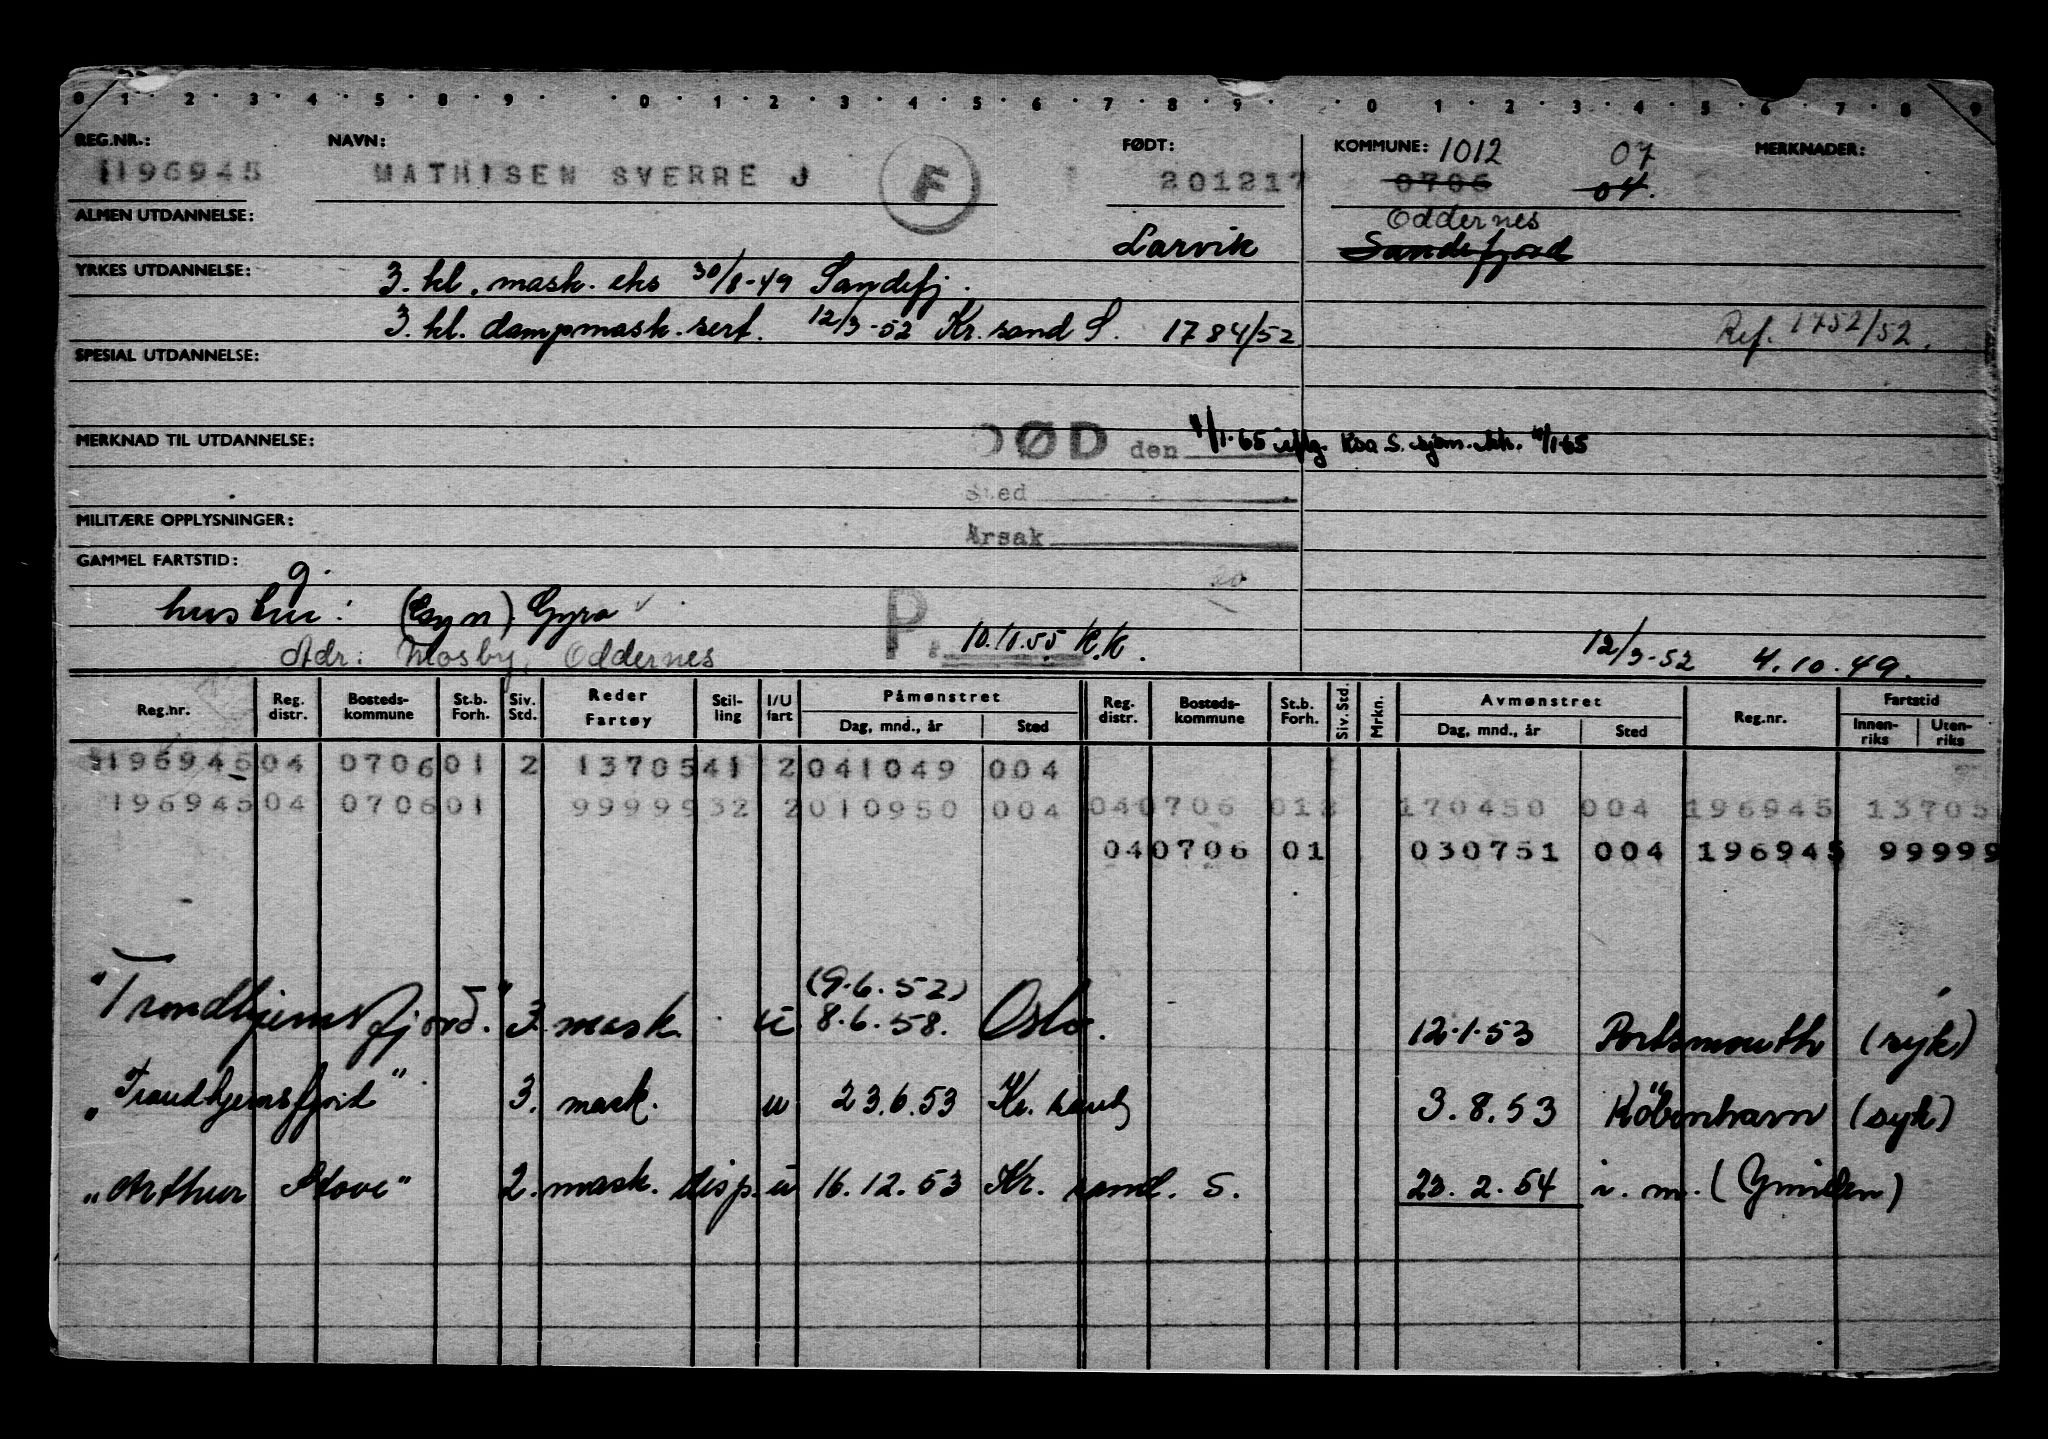 0 1 2 3 4 5 8 9 0 1 2 3 4 5 6 7 8 9 0 1 2 3 4 5 6 7 8 9
REG.NR.: NAVN: FØDT: KOMMUNE: 1012 07 MERKNADER:
196945 MATHISEN SVERRE J F 201217 0706 04.
ALMEN UTDANNELSE: Oddernes
Larvik Sandefjord
YRKES UTDANNELSE: 3. kl. mask. eks 30/8-49 Sandefj.
3. kl. dampmask. sert. 12/3-52 Kr. sand S. 1784/52 Ref. 1752/52.
SPESIAL UTDANNELSE:
MERKNAD TIL UTDANNELSE: DØD den 1/1-65 iflg. Ksa S. sjøm. 11/1-65
Sted
Årsak
MILITÆRE OPPLYSNINGER:
GAMMEL FARTSTID:
g.
hustru: Gyro
P. 10.11.55 K.K.
Adr: Mosby, Oddernes 12/3-52 4.10.49.
Reg.nr. Reg. distr. Bosteds-kommune St.b. Forh. Siv. Std. Reder Fartøy Stil-ling I/U fart Påmønstret Dag, mnd., år Sted Reg. distr. Bosteds-kommune St.b. Forh. Siv. Std. Mrkn. Avmønstret Dag, mnd., år Sted Reg.nr. Fartstid Innen-riks Uten-riks
196945 04 0706 01 2 13705 41 2 041049 004
196945 04 0706 01 99999 32 2 010950 004 04 0706 01 2 170450 004 196945 13705
04 0706 01 030751 004 196945 99999
(9.6.52)
"Trondhjemsfjord." 3. mask. u 8.6.58. Oslo. 12.1.53 Portsmouth (syk)
"Trondhjemsfjord" 3. mask. u 23.6.53 Kr. sand S 3.8.53 Köbenhavn (syk)
"Arthur Stove" 2. mask. disp. u 16.12.53 Kr. sand. S. 23.2.54 i. m.